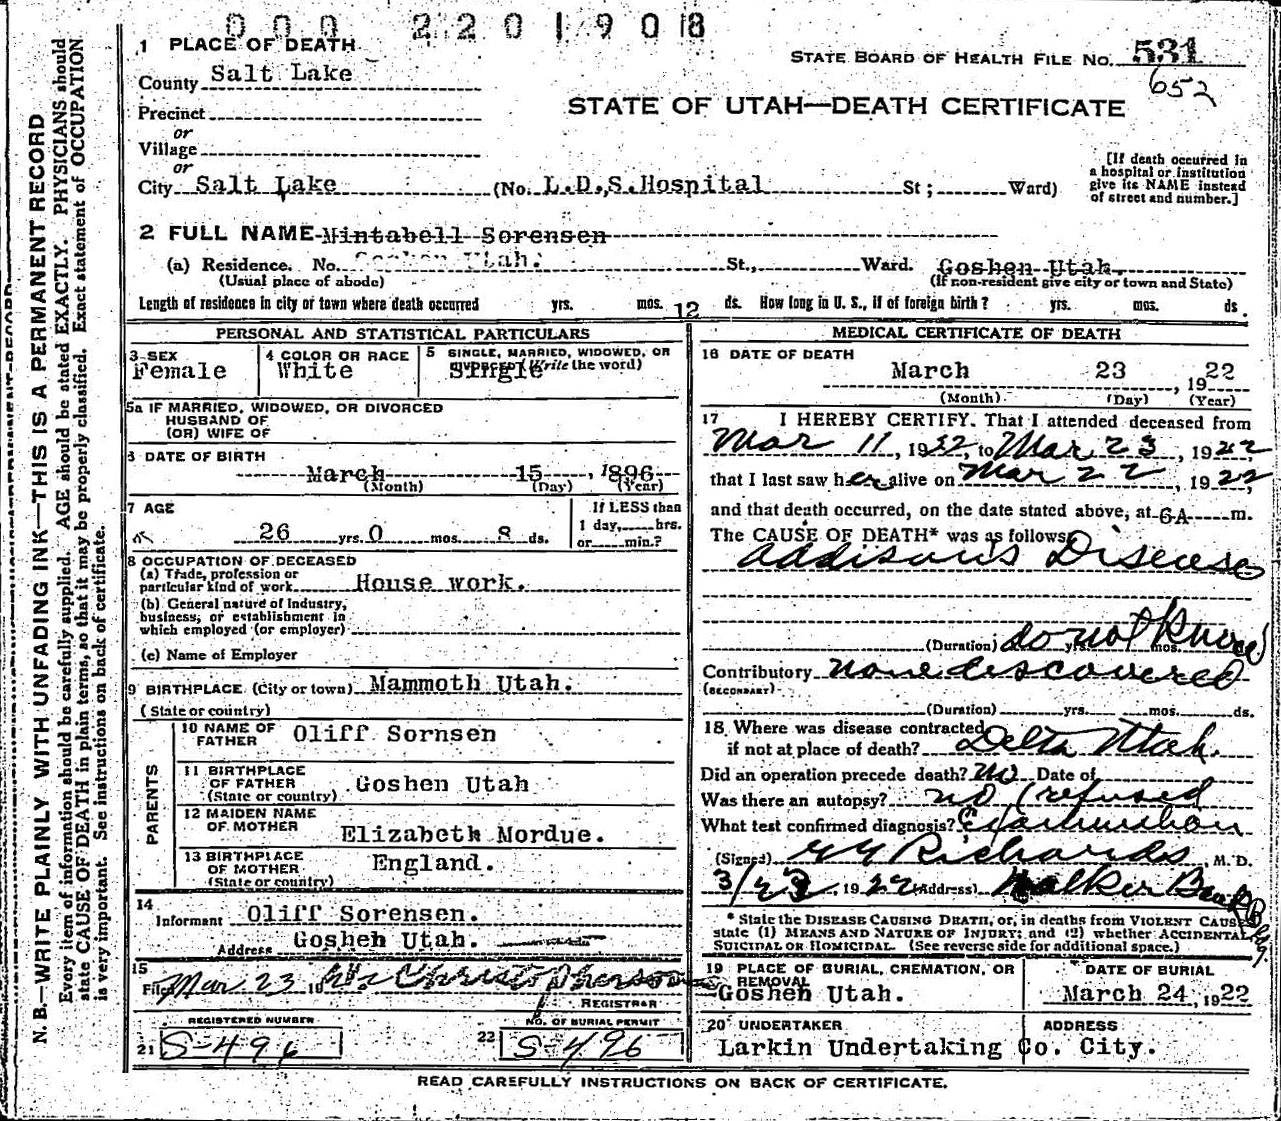 000 2201908
1 PLACE OF DEATH
STATE BOARD OF HEALTH FILE No. 531
652
County Salt Lake
STATE OF UTAH—DEATH CERTIFICATE
Precinct
or
Village
or
City Salt Lake (No. L.D.S.Hospital St; Ward)
[If death occurred in
a hospital or institution
give its NAME instead
of street and number.]
2 FULL NAME Mintabell Sorensen
(a) Residence. No. Goshen Utah. St., Ward. Goshen Utah.
(Usual place of abode) (If non-resident give city or town and State)
Length of residence in city or town where death occurred yrs. mos. 12 ds. How long in U. S., if of foreign birth? yrs. mos. ds.
PERSONAL AND STATISTICAL PARTICULARS
3 SEX
Female
4 COLOR OR RACE
White
5 SINGLE, MARRIED, WIDOWED, OR
(Write the word)
Single
5a IF MARRIED, WIDOWED, OR DIVORCED
HUSBAND OF
(OR) WIFE OF
6 DATE OF BIRTH
March 15, 1896
(Month) (Day) (Year)
7 AGE
26 yrs. 0 mos. 8 ds.
If LESS than
1 day, hrs.
or min.?
8 OCCUPATION OF DECEASED
(a) Trade, profession or
particular kind of work House work.
(b) General nature of industry,
business, or establishment in
which employed (or employer)
(c) Name of Employer
9 BIRTHPLACE (City or town) Mammoth Utah.
(State or country)
PARENTS
10 NAME OF
FATHER Oliff Sornsen
11 BIRTHPLACE
OF FATHER Goshen Utah
(State or country)
12 MAIDEN NAME
OF MOTHER Elizabeth Mordue.
13 BIRTHPLACE
OF MOTHER England.
(State or country)
14
Informant Oliff Sorensen.
Address Goshen Utah.
15
Filed Mar 23 19 Christopherson
REGISTRAR
REGISTERED NUMBER
21 S-496
NO. OF BURIAL PERMIT
22 S-496
MEDICAL CERTIFICATE OF DEATH
16 DATE OF DEATH
March 23, 1922
(Month) (Day) (Year)
17 I HEREBY CERTIFY. That I attended deceased from
Mar 11, 1922, to Mar 23, 1922,
that I last saw her alive on Mar 22, 1922,
and that death occurred, on the date stated above, at 6A m.
The CAUSE OF DEATH* was as follows:
Addison's Disease
(Duration) do not know yrs. mos.
Contributory none discovered
(SECONDARY)
(Duration) yrs. mos. ds.
18 Where was disease contracted
if not at place of death? Delta Utah.
Did an operation precede death? no Date of
Was there an autopsy? no (refused
What test confirmed diagnosis? Examination
(Signed) G G Richards, M. D.
3/23, 1922 (Address) Walker Bank Bldg
* State the DISEASE CAUSING DEATH, or, in deaths from VIOLENT CAUSES
state (1) MEANS AND NATURE OF INJURY; and (2) whether ACCIDENTAL,
SUICIDAL OR HOMICIDAL. (See reverse side for additional space.)
19 PLACE OF BURIAL, CREMATION, OR
REMOVAL
Goshen Utah.
DATE OF BURIAL
March 24, 1922
20 UNDERTAKER
Larkin Undertaking Co. City.
ADDRESS
READ CAREFULLY INSTRUCTIONS ON BACK OF CERTIFICATE.
N. B.—WRITE PLAINLY WITH UNFADING INK—THIS IS A PERMANENT RECORD
Every item of information should be carefully supplied. AGE should be stated EXACTLY. PHYSICIANS should
state CAUSE OF DEATH in plain terms, so that it may be properly classified. Exact statement of OCCUPATION
is very important. See instructions on back of certificate.